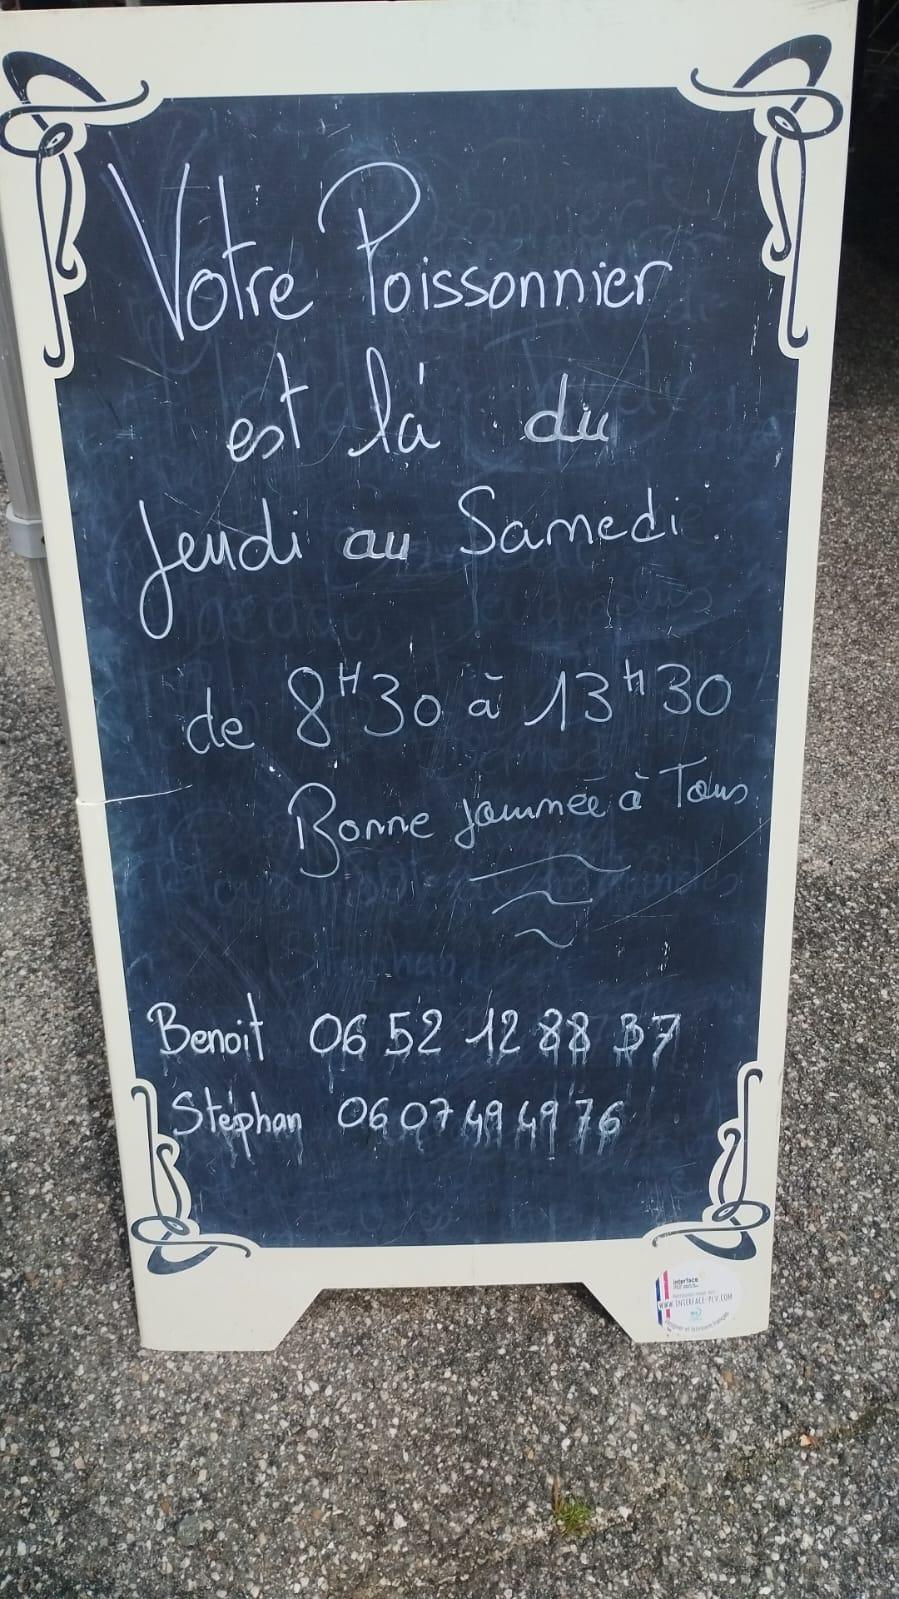 Votre Poissonnier
est là du
Jeudi au Samedi
de 8H30 à 13H30
Bonne journée à Tous
Benoit 06 52 12 88 37
Stéphan 06 07 49 49 76
interface
WWW.INTERFACE-PLV.COM